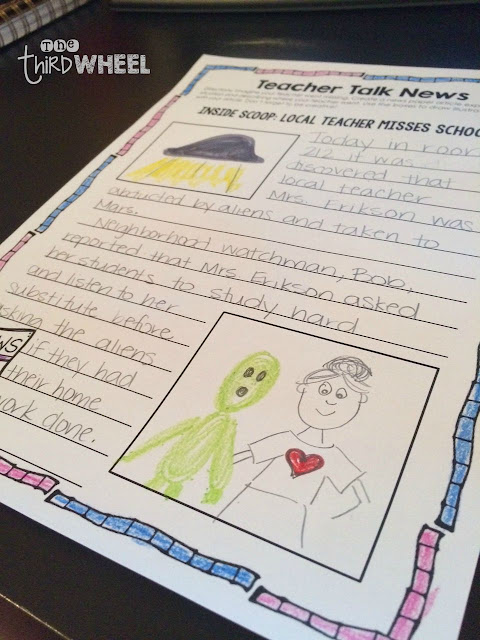 The
Third WHEEL
Teacher Talk News
INSIDE SCOOP: LOCAL TEACHER MISSES SCHOO
Today in room
212 it was
discovered that
local teacher
Mrs. Erikson was
abducted by aliens and taken to
Mars.
Neighborhood watchman, Bob,
reported that Mrs. Erikson asked
her students to study hard
and listen to her
substitute before
asking the aliens
if they had
their home
work done.
WS